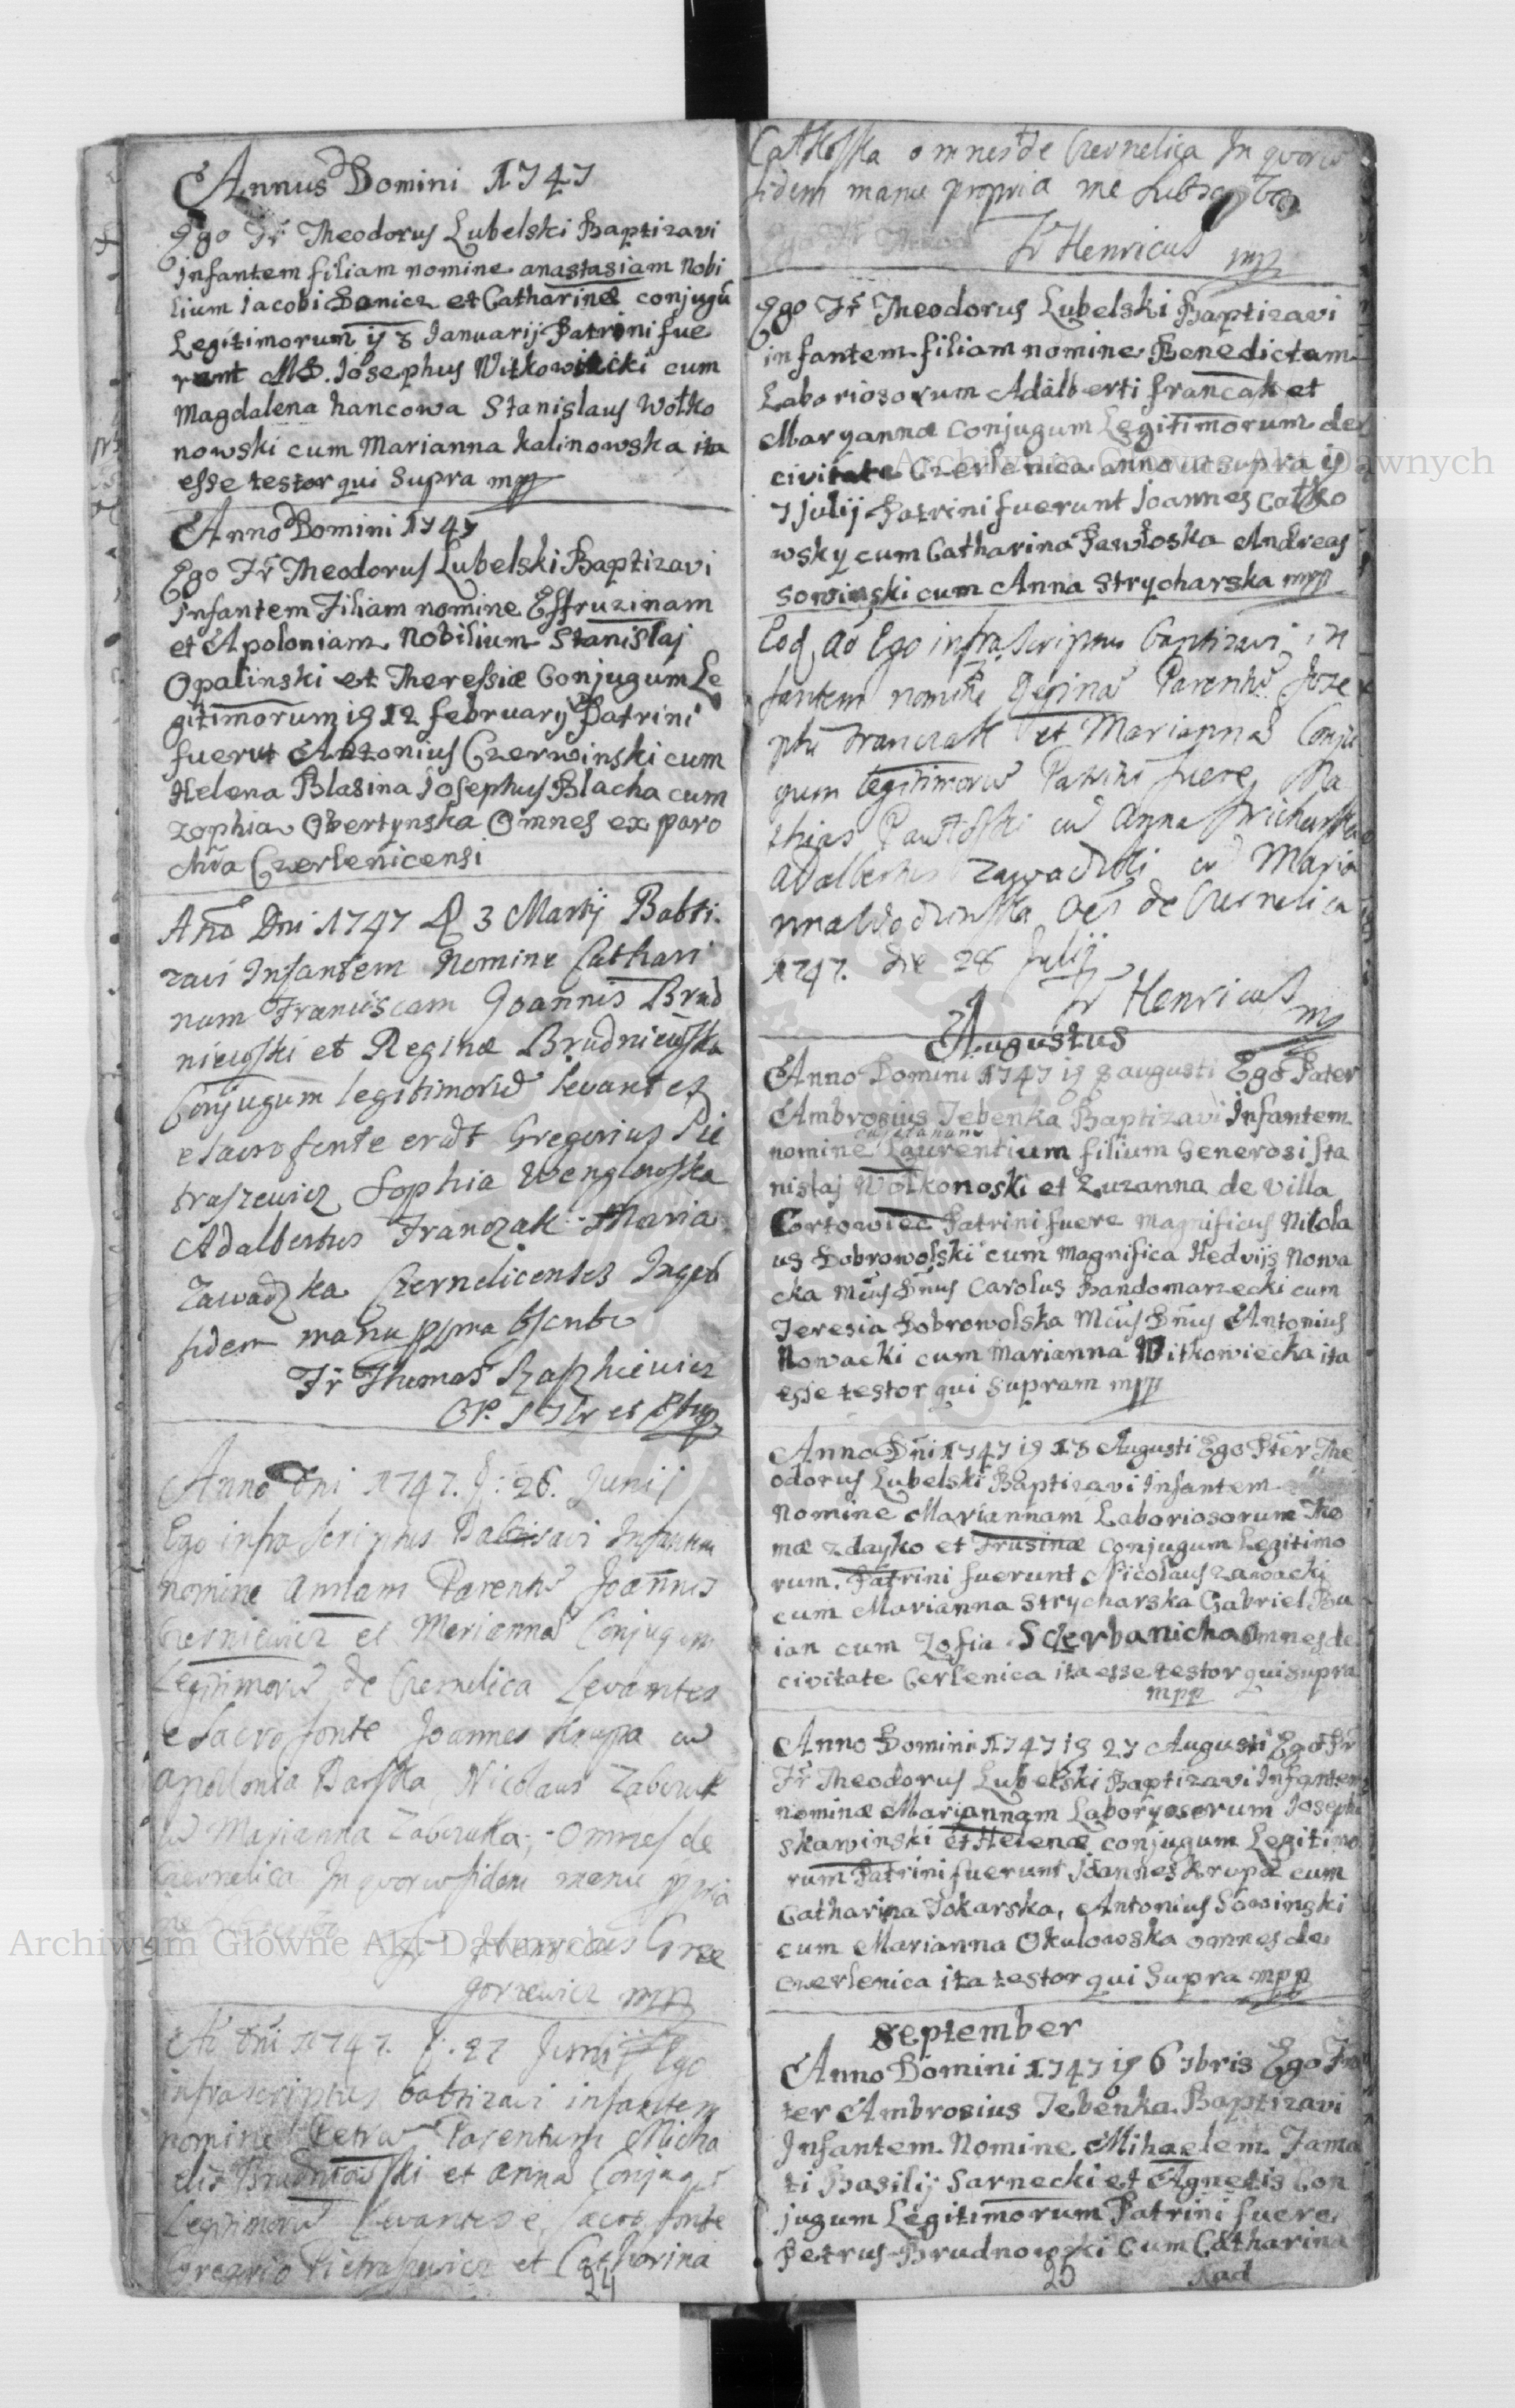 Annus Domini 1747
Ego Fr Theodorus Lubelski Baptizavi
infantem filiam nomine anastasiam Nobi
lium Iacobi Donicz et Catharinæ conjugũ
Legitimorum ij 8 Ianuarij Patrini fue
runt MD. Iosephus Witkowicki cum
Magdalena hancowa Stanislaus Wołko
nowski cum Marianna kalinowska ita
esse testor qui Supra mpp
Anno Domini 1747
Ego Fr Theodorus Lubelski Baptizavi
Infantem Filiam nomine Effruzinam
et Apoloniam Nobilium Stanislaj
Opalinski et Theressiæ Conjugum Le
gitimorum 19 12 february Patrini
fuerut Antonius Czerwinski cum
Helena Blasina Iosephus Blacha cum
zophia Obertynska Omnes ex paro
chia Czerlenicensi
Año Dni 1747 D 3 Martij Babti
zavi Infantem Nomine Cathari
nam Franciscam Joannis Brud
niewski et Reginæ Brudniewska
Conjugum legitimorũ levantes
e sacro fonte erãt Gregorius Pie
traszewicz Sophia Wenglowska
Adalbertus Franczak Maria
Zawadzka Czernelicenses In quo
fidem manu ppria
Fr Thomas
Anno Dni 1747. d: 26. Junij
Ego infra scriptus Babtizavi Infantem
nomine annam Parentũ Joannis
Czerniewicz et Mariannæ Conjugum
Legitimorũ de Czernelica Levantes
e Sacro fonte Joannes Krupa cũ
apollonia Barska Nicolaus Zabczuk
cũ Marianna Zabczuka, Omnes de
Czernelica In quorũ fidem manu ppria
Fr Henricus Grze
gorzewicz mpp
Añ Dni 1747. d. 27 Junij Ego
infrascriptus babtizavi infantem
nomine Petrũ Parentum Micha
elis Brudnowski et anna Conjugũ
Legitimorũ Levantes e Sacro fonte
Gregorio Pietraszewicz et Catharina
24
Catkoska omnes de Czernelica In quorũ
fidem manu propria me Subscribo
Fr Henricus mpp
Ego Fr Theodorus Lubelski Baptizavi
infantem filiam nomine Benedictam
Laboriosorum Adalberti francak et
Maryannæ Conjugum Legitimorum de
civitate Czerlenica anno ut supra 19
7 julij Patrini fuerunt Joannes Catko
wsky cum Catharina Pawłoska Andreas
Sowinski cum Anna Strycharska mpp
Eod Aõ Ego infra scriptus baptizavi in
fantem nomine Reginã Parentũ Jose
phi Franczak et Mariannæ Conju
gum legitimorũ Patrini fuere Ma
thias Pawłoski cũ Anna Stricharska
adalbertus Zawadzki cũ Maria
nna de Czernelica
1747. die 28 Julij
Fr Henricus mp
Augustus
Anno Domini 1747 19 8 augusti Ego Pater
Ambrosius Jebenka Baptizavi Infantem
cajetanum
nomine Laurentium filium Generosi Sta
nislaj Wołkonoski et Zuzanna de villa
Cortowiec Patrini fuere Magnificus Nikola
us Dobrowolski cum Magnifica Hedvijs Nowa
cka Mcus Dnus Carolus Sandomarzecki cum
Teresia Dobrowolska Mcus Dnus Antonius
Nowacki cum Marianna Witkowiecka ita
esse testor qui Supram mpp
Anno Dñi 1747 19 18 Augusti Ego Pter The
odorus Lubelski Baptizavi Infantem
Nomine Mariannam Laboriosorum Tho
mæ zdayko et Frusinæ Conjugum Legitimo
rum. Patrini fuerunt Nicolaus Zawacki
cum Marianna Strycharska Gabriel Bu
ian cum Zofia Sczerbanicha omnes de
civitate Cerlenica ita esse testor qui supra
mpp
Anno Domini 1747 19 27 Augusti Ego Fr
Fr Theodorus Lubelski Baptizavi Infantem
nominæ Mariannam Laboryosorum Josephi
skawinski et Helenæ conjugum Legitimo
rum Patrini fuerunt Joannes Krupa cum
Catharina Tokarska, Antonius Sowinski
cum Marianna Okulowska omnes de
czerlenica ita testor qui Supra mpp
September
Anno Domini 1747 19 6 7bris Ego Fra
ter Ambrosius Jebenka Baptizavi
Infantem Nomine Mihaelem Fama
ti Basilij Sarnecki et Agnetis Con
jugum Legitimorum Patrini fuere
Petrus Brudnowski Cum Catharina
25
Archiwum Główne Akt Dawnych
Archiwum Główne Akt Dawnych